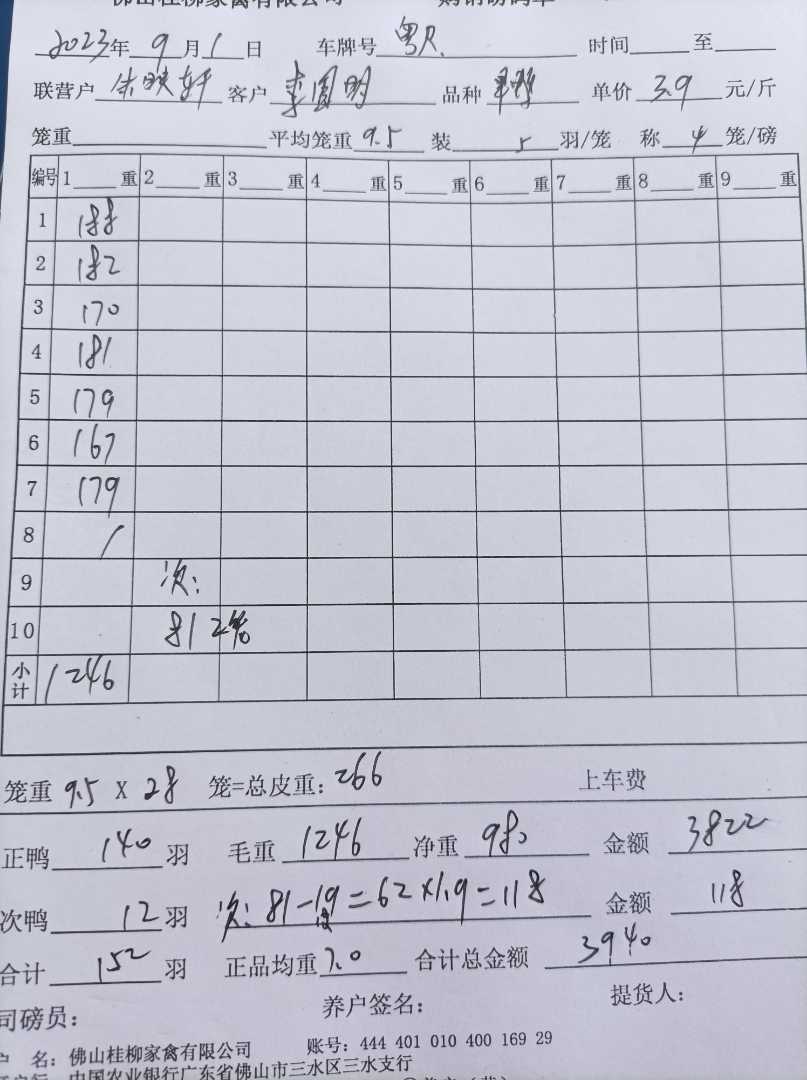 佛山桂柳家禽有限公司 购销磅码单
2023年 9月 1日 车牌号 粤R. 时间 至
联营户 朱映轩 客户 李圆明 品种 单价 3.9 元/斤
笼重 平均笼重 9.5 装 5 羽/笼 称 4 笼/磅
编号 1 重 2 重 3 重 4 重 5 重 6 重 7 重 8 重 9 重
1 188
2 182
3 170
4 181
5 179
6 167
7 179
8 /
9 次:
10 81 2笼
小计 1246
笼重 9.5 X 28 笼=总皮重: 266 上车费
正鸭 140 羽 毛重 1246 净重 980 金额 3822
次鸭 12 羽 次: 81-19=62×1.9=118 金额 118
合计 152 羽 正品均重 7.0 合计总金额 3940
司磅员: 养户签名: 提货人:
户 名: 佛山桂柳家禽有限公司 账号: 444 401 010 400 169 29
中国农业银行广东省佛山市三水区三水支行